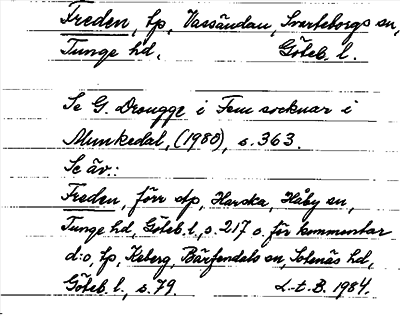 Freden, tp, Vassändan, Svarteborgs sn,
Tunge hd, Göteb. l.
Se G. Drougge i Fem socknar i
Munkedal, (1980), s. 363.
Se äv.:
Freden, förr dp, Harska, Håby sn,
Tunge hd, Göteb. l, s. 217 o. för kommentar
d:o, tp, Keberg, Bärfendals sn, Sotenäs hd,
Göteb. l., s. 79. L-t. B. 1984.